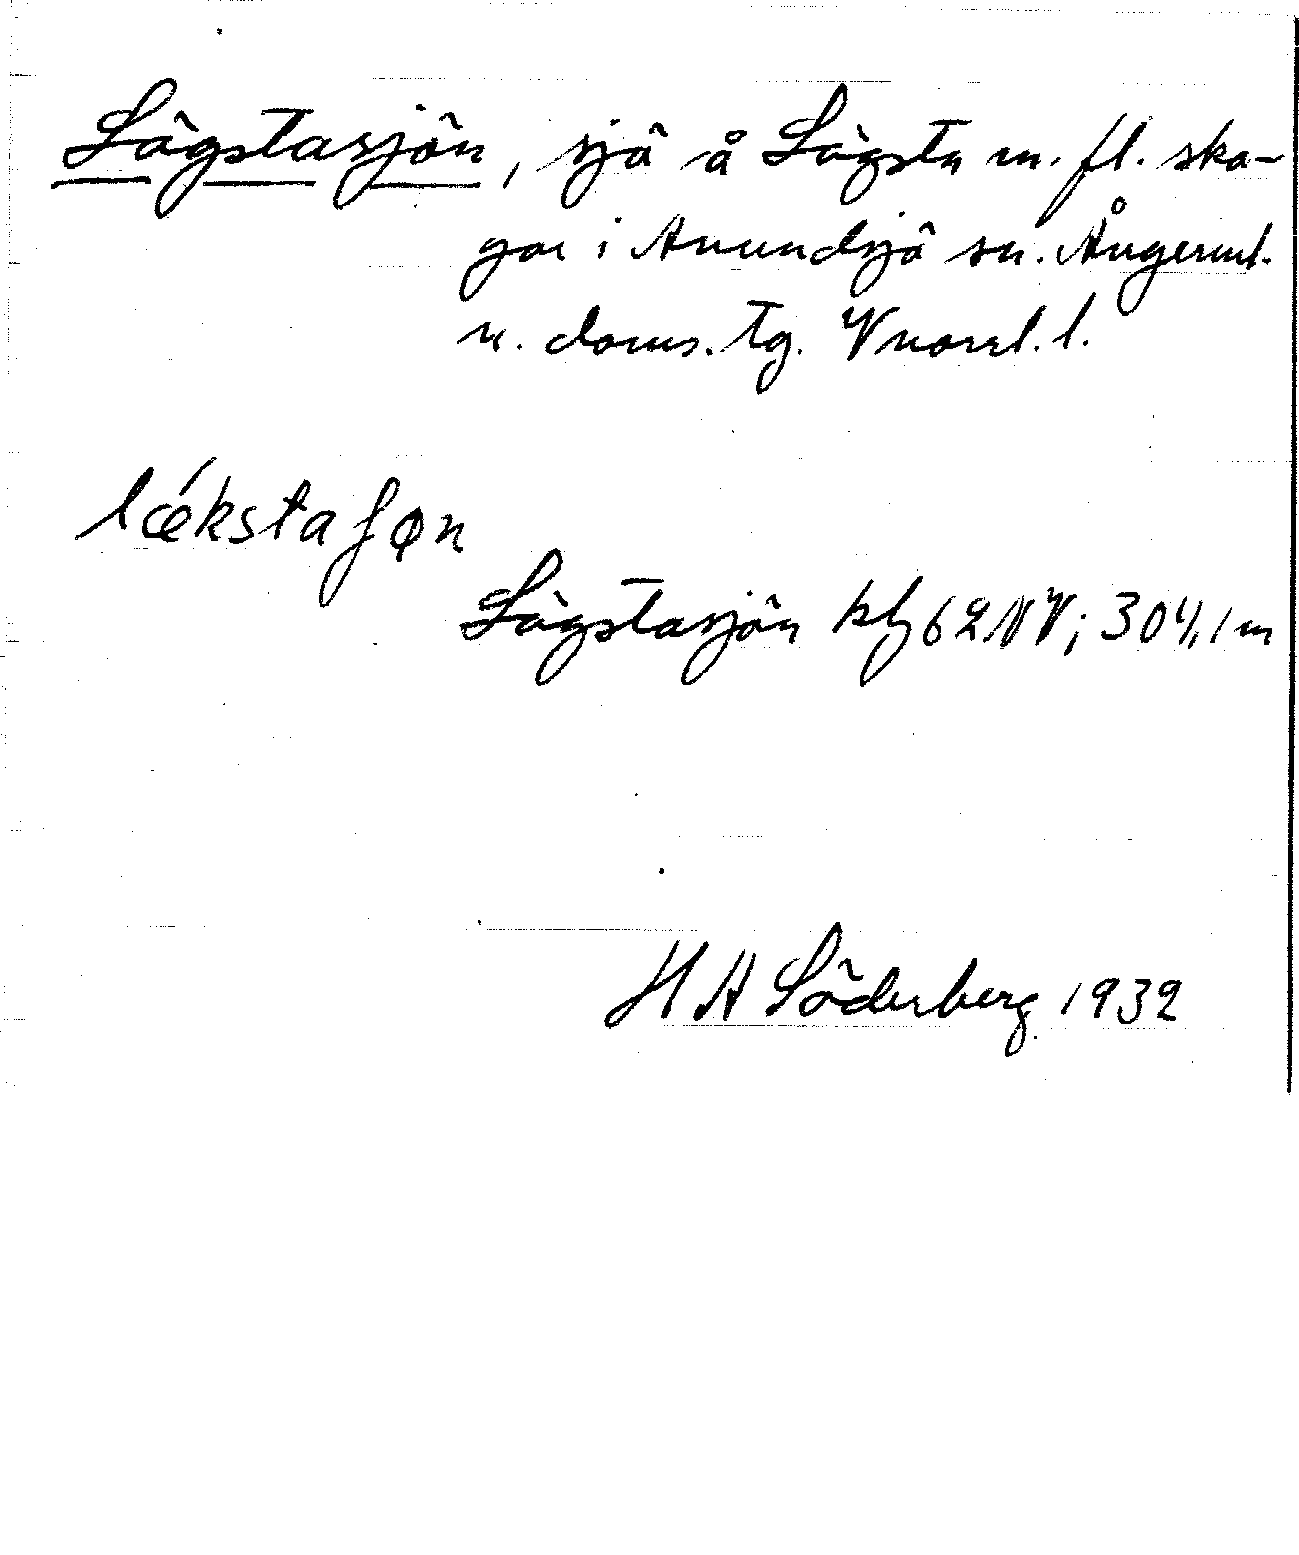 Lägstasjön, sjö å Lägsta m. fl. ska-
gar i Anundsjö sn. Ångerml.
n. doms. tg. Vnorrl. l.
lǽkstaʃøn
Lägstasjön kbl 62 NV; 304,1 m
H A Söderberg 1932